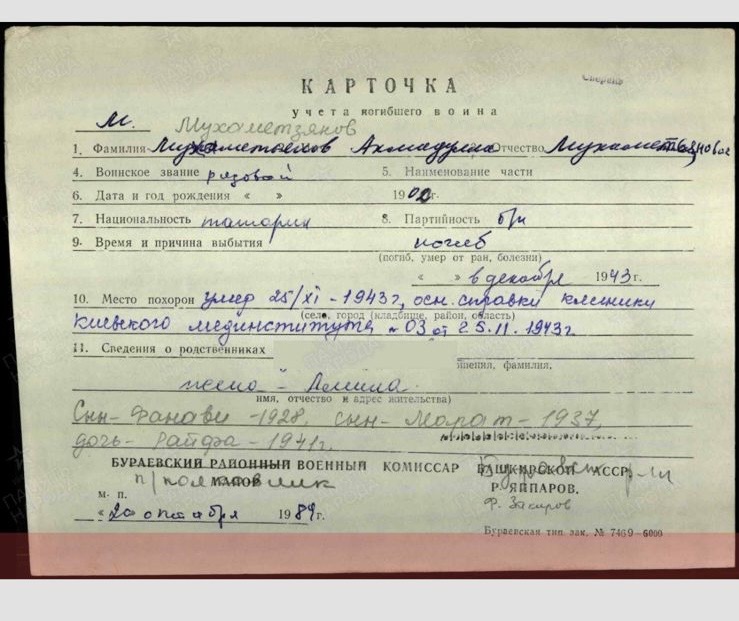 Сверень
КАРТОЧКА
учета погибшего воина
М. Мухометзянов
1. Фамилия Ахмадулла Отчество
4. Воинское звание рядовой 5. Наименование части
6. Дата и год рождения « » 1900г.
7. Национальность татарин 8. Партийность б/п
9. Время и причина выбытия погиб
(погиб, умер от ран, болезни)
« » в декабре 1943г.
10. Место похорон умер 25/XI - 1943г, осн. справки клиники
(село, город (кладбище, район, область)
Киевского мединститута № 03 от 25.11. 1943г
11. Сведения о родственниках
фамилия.
жена -
имя, отчество и адрес жительства)
Сын - Фанави - 1928, сын - Марат - 1937,
дочь - Райфа - 1941г.
БУРАЕВСКИЙ РАЙОННЫЙ ВОЕННЫЙ КОМИССАР БАШКИРСКОЙ АССР
п/полковник МАЙОР Р. ЯППАРОВ.
м. п. Ф. Закиров
« 20 октября 1989г.
Бураевская тип. зак. № 7469-6000